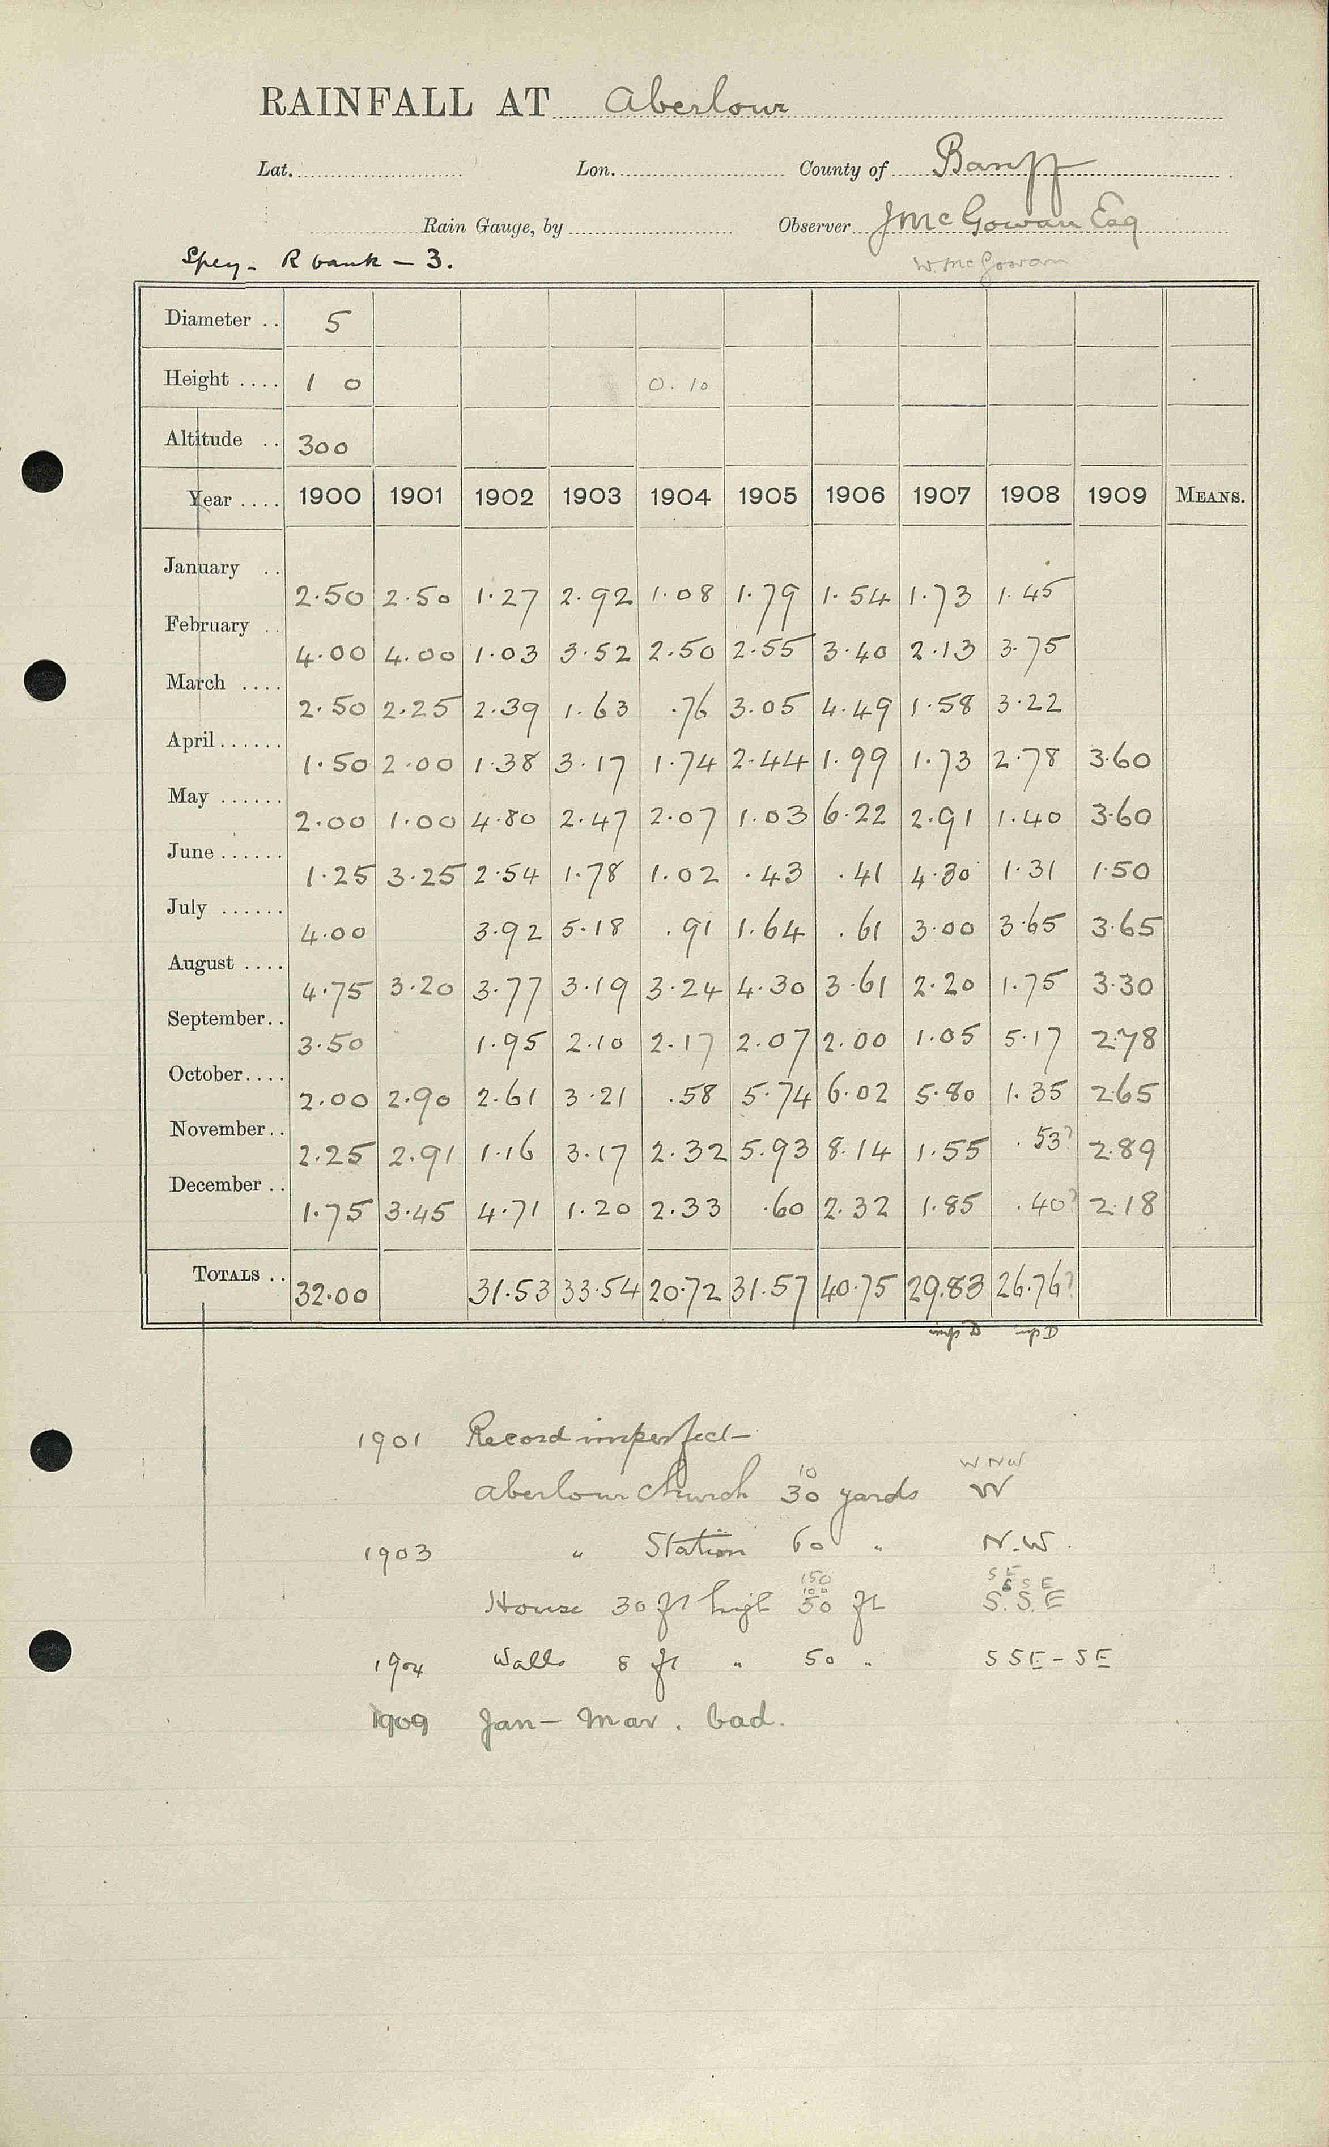 RAINFALL AT Aberlour
Lat. Lon. County of Banff
Rain Gauge, by Observer J McGowan Esq
Spey - R bank - 3. W. McGowan
Diameter .. 5
Height .... 1 0 0.10
Altitude .. 300
Year .... 1900 1901 1902 1903 1904 1905 1906 1907 1908 1909 MEANS.
January .. 2.50 2.50 1.27 2.92 1.08 1.79 1.54 1.73 1.45
February .. 4.00 4.00 1.03 3.52 2.50 2.55 3.40 2.13 3.75
March .... 2.50 2.25 2.39 1.63 .76 3.05 4.49 1.58 3.22
April ...... 1.50 2.00 1.38 3.17 1.74 2.44 1.99 1.73 2.78 3.60
May ...... 2.00 1.00 4.80 2.47 2.07 1.03 6.22 2.91 1.40 3.60
June ...... 1.25 3.25 2.54 1.78 1.02 .43 .41 4.30 1.31 1.50
July ...... 4.00 3.92 5.18 .91 1.64 .61 3.00 3.65 3.65
August .... 4.75 3.20 3.77 3.19 3.24 4.30 3.61 2.20 1.75 3.30
September.. 3.50 1.95 2.10 2.17 2.07 2.00 1.05 5.17 2.78
October.... 2.00 2.90 2.61 3.21 .58 5.74 6.02 5.80 1.35 2.65
November.. 2.25 2.91 1.16 3.17 2.32 5.93 8.14 1.55 .53? 2.89
December .. 1.75 3.45 4.71 1.20 2.33 .60 2.32 1.85 .40? 2.18
TOTALS .. 32.00 31.53 33.54 20.72 31.57 40.75 29.83 26.76?
imp D imp D
1901 Record imperfect -
10 WNW
Aberlour Church 30 yards W
1903 " Station 60 " N.W.
150 SE
100 SSE
House 30 ft high 50 ft S.S.E
1904 Walls 8 ft " 50 " SSE - SE
1909 Jan - Mar. bad.